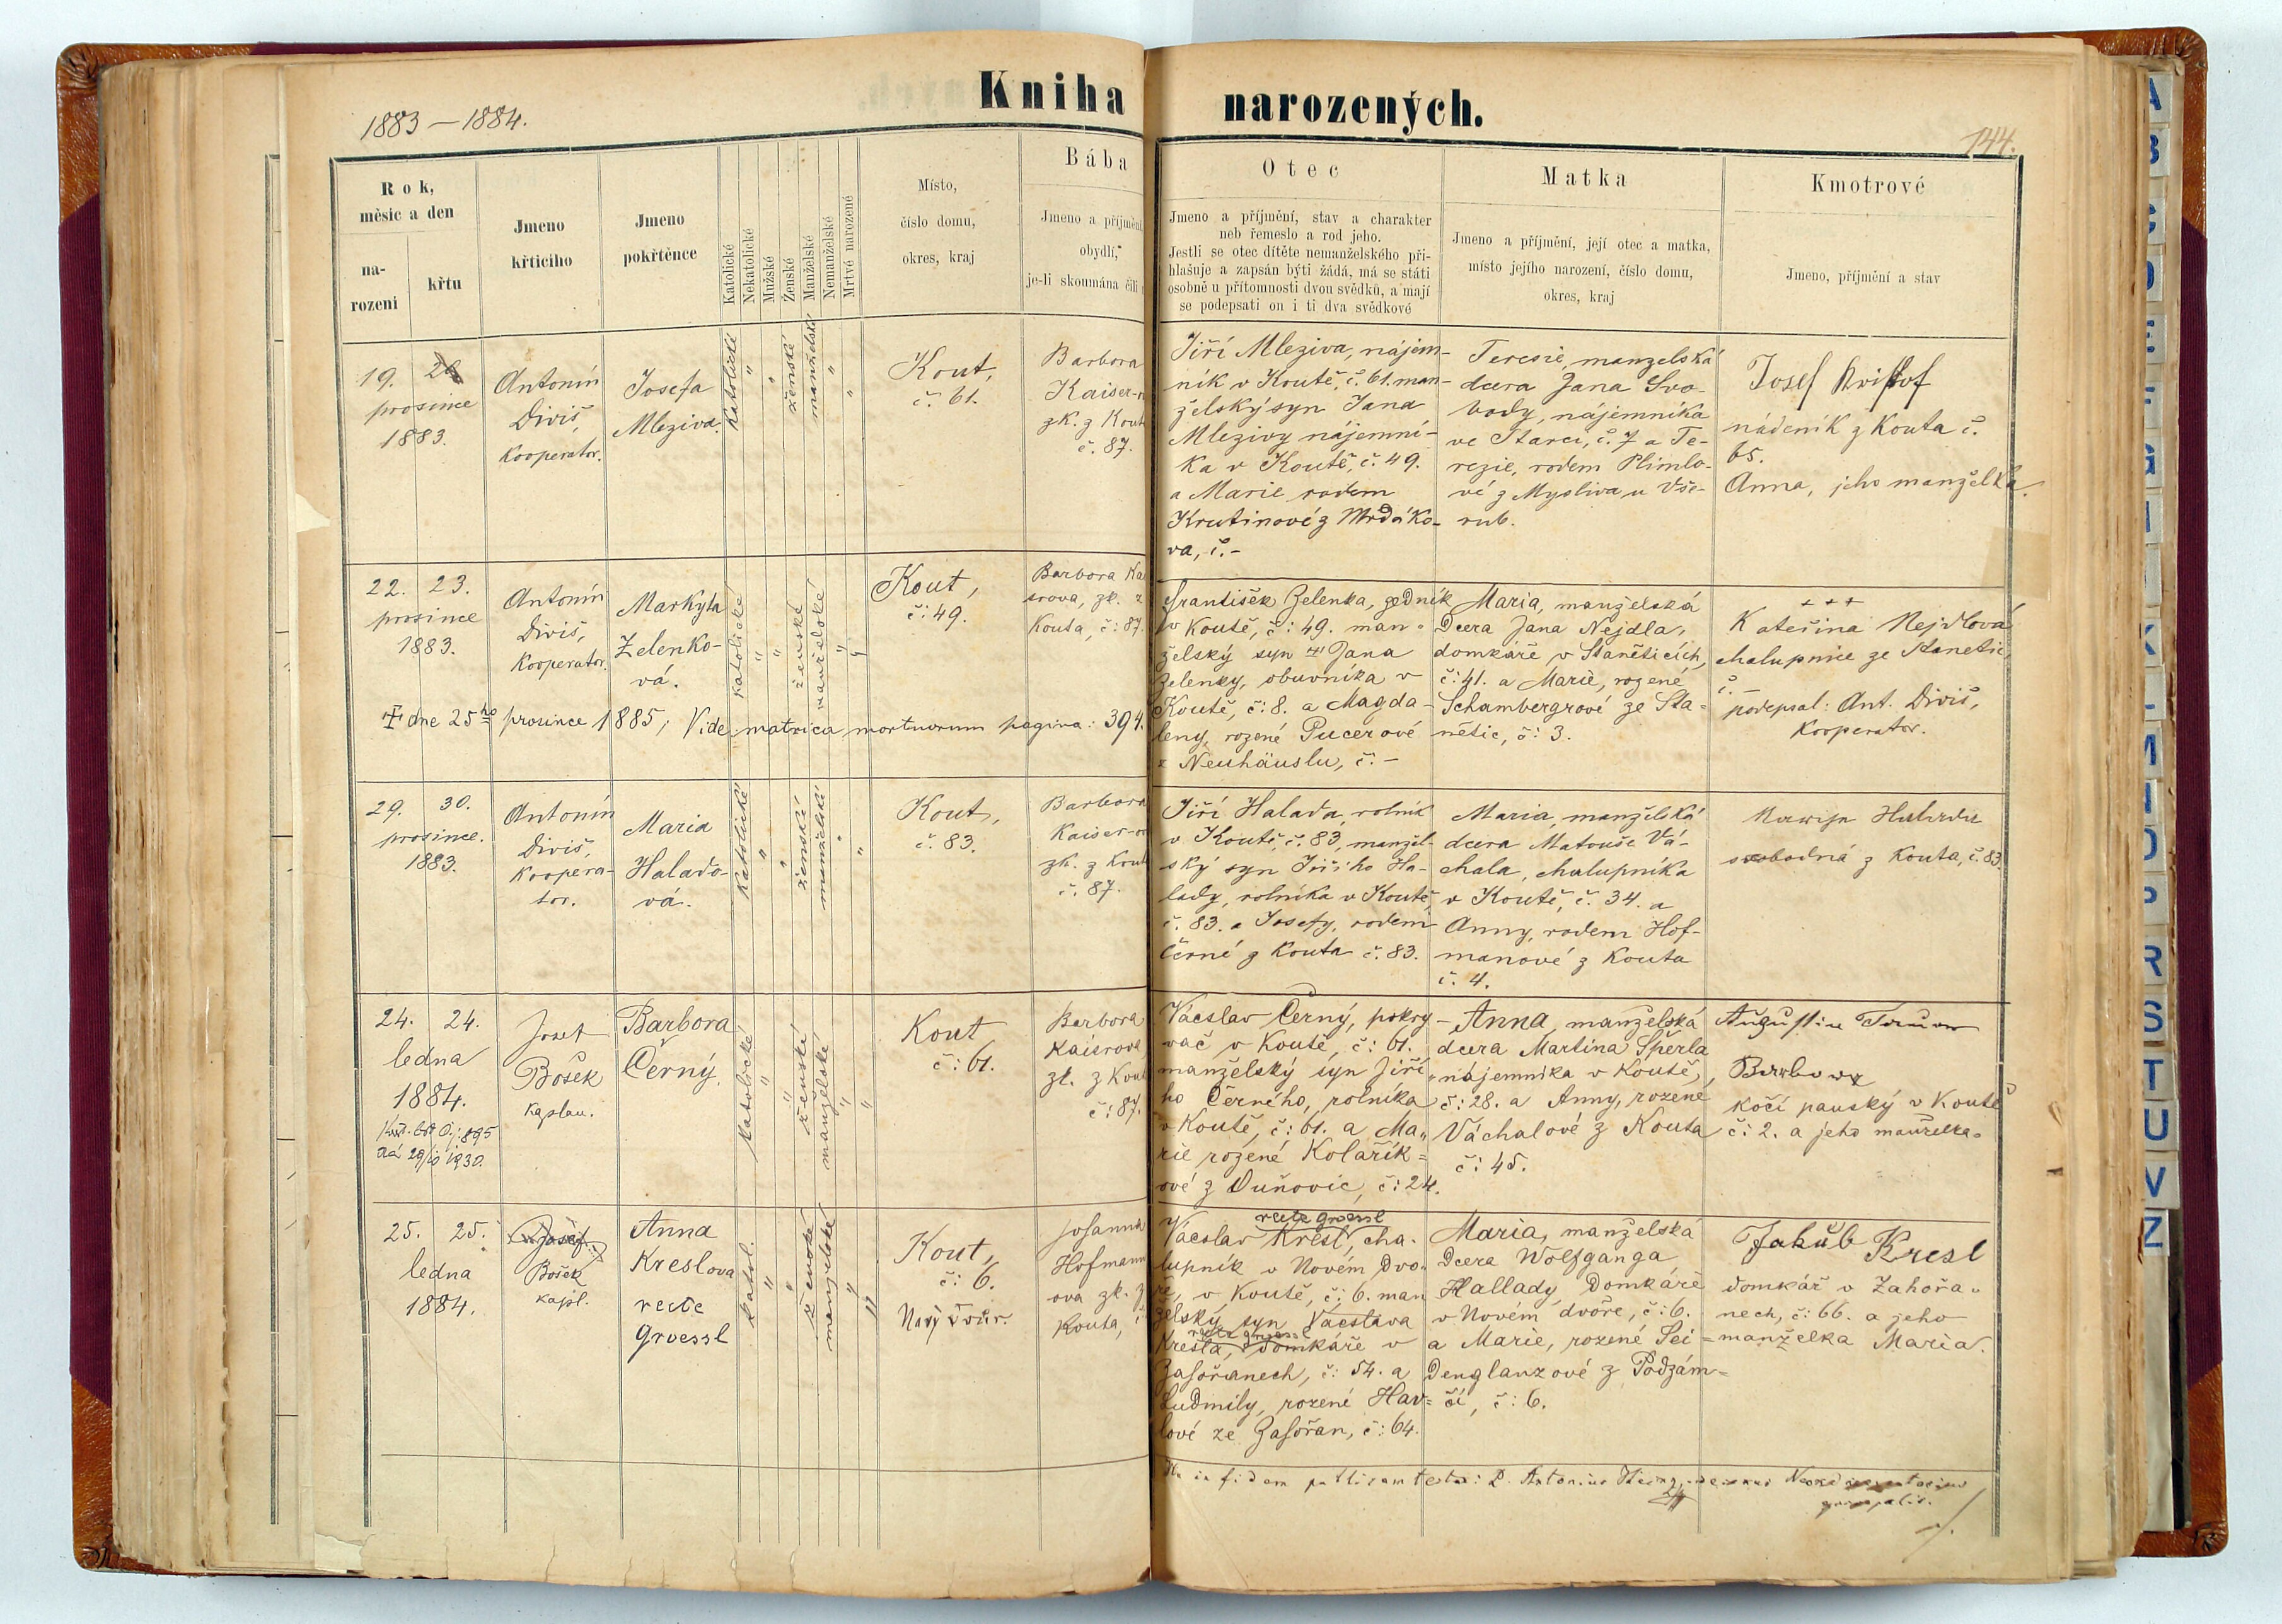 1883–1884.
Kniha narozených.
144.
Rok,
měsíc a den
na-
rození
křtu
Jmeno
křticího
Jmeno
pokřtěnce
Katolické
Nekatolické
Mužské
Ženské
Manželské
Nemanželské
Mrtvé narozené
Místo,
číslo domu,
okres, kraj
Bába
Jmeno a příjmení,
obydlí,
je-li skoumána čili
Otec
Jmeno a příjmění, stav a charakter
neb řemeslo a rod jeho.
Jestli se otec dítěte nemanželského při-
hlašuje a zapsán býti žádá, má se státi
osobně u přítomnosti dvou svědků, a mají
se podepsati on i ti dva svědkové
Matka
Jmeno a příjmění, její otec a matka,
místo jejího narození, číslo domu,
okres, kraj
Kmotrové
Jmeno, příjmění a stav
19.
prosince
1883.
Antonín
Diviš,
Kooperator.
Josefa
Mleziva.
Katolické
"
"
ženské
manželské
"
"
Kout,
č. 61.
Barbora
Kaiser-
zk. z Kout
č. 87.
Jiří Mleziva, nájem-
ník v Koutě, č. 61. man-
želský syn Jana
Mlezivy nájemní-
ka v Koutě, č. 49.
a Marie rodem
Krutinové z Mrdáko-
va, č. –
Teresie, manzelská
dcera Jana Svo-
body, nájemníka
ve Starci, č. 7 a Te-
rezie, rodem Plimlo-
vé z Mysliva u Vše-
rub.
Josef Krištof
nádeník z Kouta č.
65.
Anna, jeho manželka.
22. 23.
prosince
1883.
Antonín
Diviš,
Kooperator.
Markyta
Zelenko-
vá.
katolické
"
"
ženské
manželské
"
"
Kout,
č: 49.
Barbora Ka
srova, zk. z
Kouta, č: 87.
František Zelenka, zedník
v Koutě, č: 49. man-
želský syn Jana
Zelenky, obuvníka v
Koutě, č: 8. a Magda-
leny, rozené Pucerové
z Neuhäuslu, č. –
Maria, manželská
Dcera Jana Nejdla,
domkáře v Staněticích,
č: 41. a Marie, rozené
Schambergrové ze Sta-
nětic, č: 3.
+ + +
Kateřina Nejdlová
chalupnice ze Stanetic,
č. –
podepsal: Ant. Diviš,
Kooperator.
† dne 25ho prosince 1885; Vide matrica mortuorum pagina: 394.
29. 30.
prosince.
1883.
Antonín
Diviš,
Koopera-
tor.
Maria
Halado-
vá.
Katolické
"
"
ženské
manželské
"
"
Kout,
č. 83.
Barbora
Kaiser-
zk. z Kout
č. 87.
Jiří Halada, rolník
v Koutě, č. 83, manžel-
ský syn Jiřího Ha-
lady, rolníka v Koutě,
č. 83. a Josefy, rodem
Černé z Kouta č. 83.
Maria, manželská
dcera Matouše Vá-
chala, chalupníka
v Koutě, č. 34. a
Anny, rodem Hof-
manové z Kouta
č. 4.
svobodná z Kouta, č. 83.
24. 24.
ledna
1884.
Křt. list č.j: 895
20/10 1930.
Josef
Bošek
kaplan.
Barbora
Černý.
katolické
"
"
ženské
manželské
"
"
Kout
č: 61.
Barbora
Kaisrova
zk. z Kout
č: 87.
Václav Černý, pokry-
vač v Koutě, č: 61.
manželský syn Jiří-
ho Černého, rolníka
v Koutě, č: 61. a Ma-
rie rozené Kolařík-
ové z Duňovic, č: 24.
Anna, manželská
dcera Martina Šperla
nájemníka v Koutě,
č: 28. a Anny, rozené
Váchalové z Kouta
č: 45.
Augustin
Barbora
kočí panský v Koutě
č: 2. a jeho manželka.
25. 25.
ledna
1884.
Josef
Bošek
kapl.
Anna
Kreslova
recte
Groessl
katol.
"
"
ženské
manželské
"
"
Kout,
č: 6.
Nový Dvůr.
Johanna
Hofmann
ova zk. z
Kouta,
recte Groessl
Václav Kresl, cha-
lupník v Novém Dvo-
ře, v Koutě, č: 6. man
želský syn Václava
recte Groessl
Kresla, domkáře v
Zahořanech, č: 54. a
Ludmily, rozené Hav-
lové ze Zahořan, č: 64.
Maria, manželská
Dcera Wolfganga
Hallady, Domkáře
v Novém dvoře, č: 6.
a Marie, rozené Sei-
Denglanzové z Podzám-
čí, č: 6.
Jakub Kresl
domkář v Zahořa-
nech, č: 66. a jeho
manželka Maria.
in fidem publicam testor: P. Antonius
A
B
C
D
E
F
G
I
K
L
M
P
R
S
T
U
V
Z